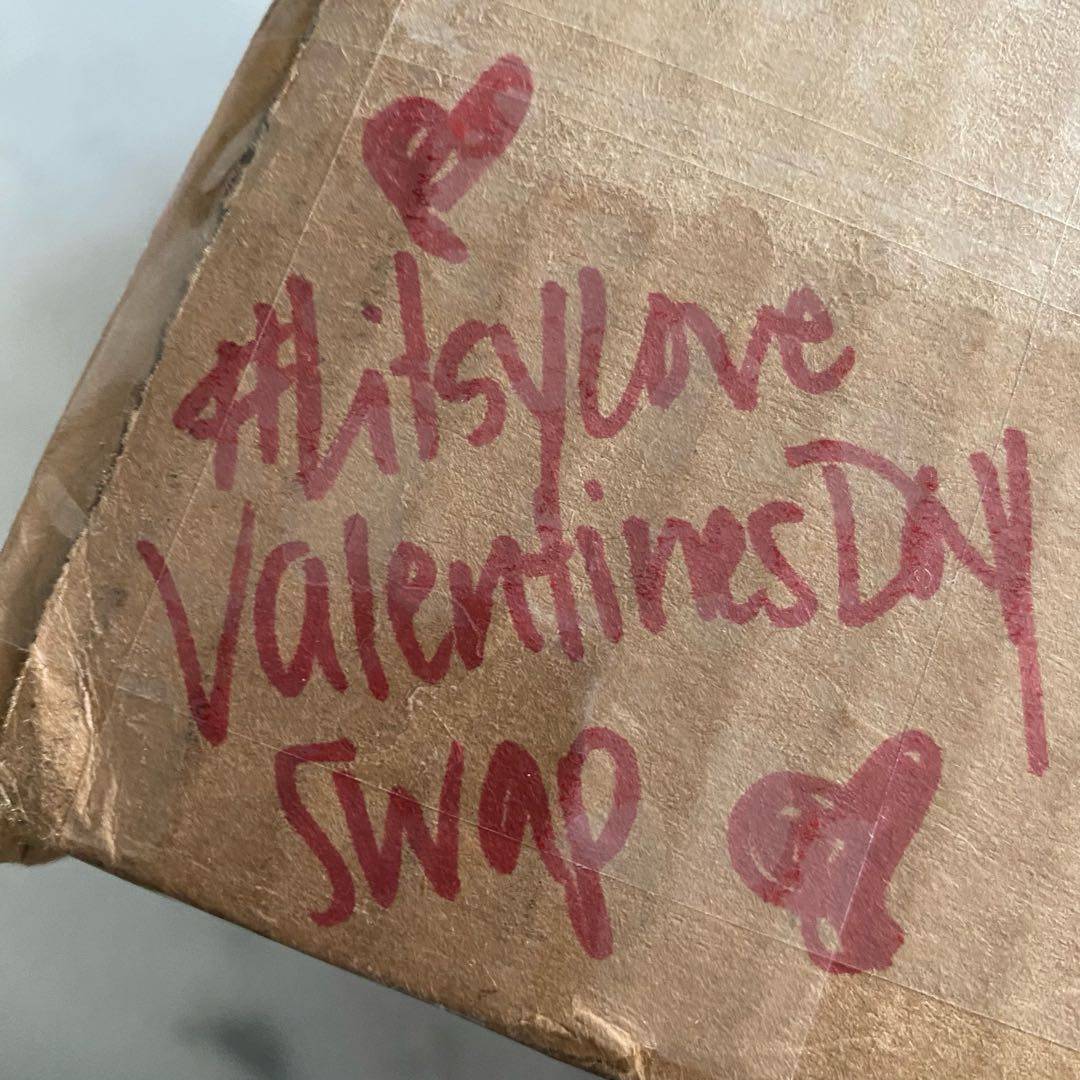 #LitsyLove
Valentines Day
Swap